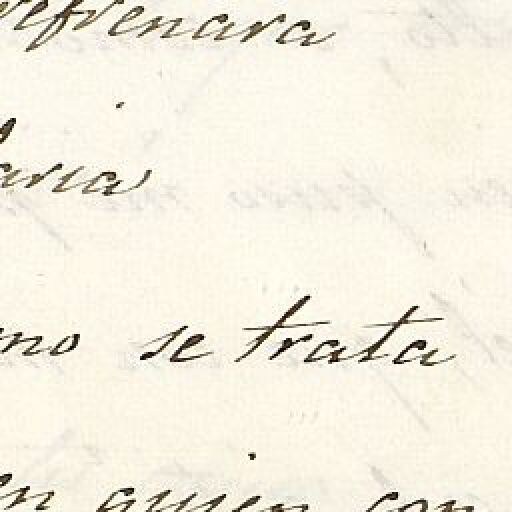 refrenara
aria
mo se trata
en quien con